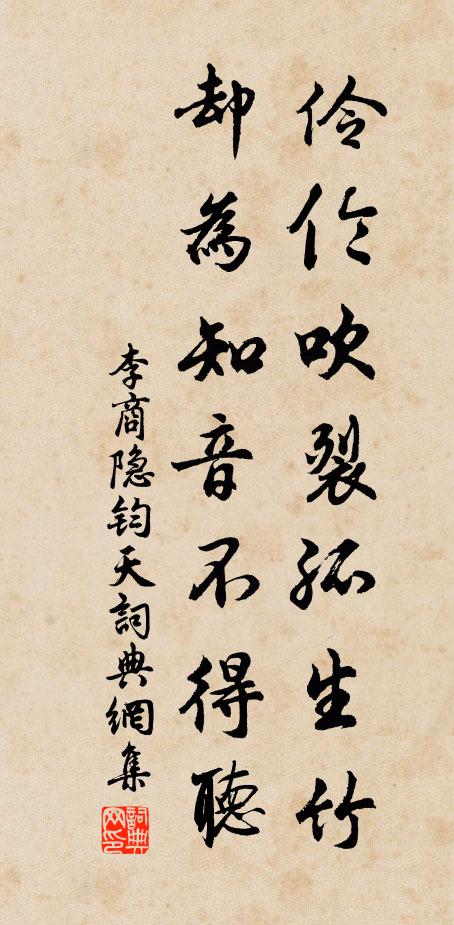 伶伦吹裂孤生竹
却為知音不得聽
李商隐钧天詞典網集
詞典网印